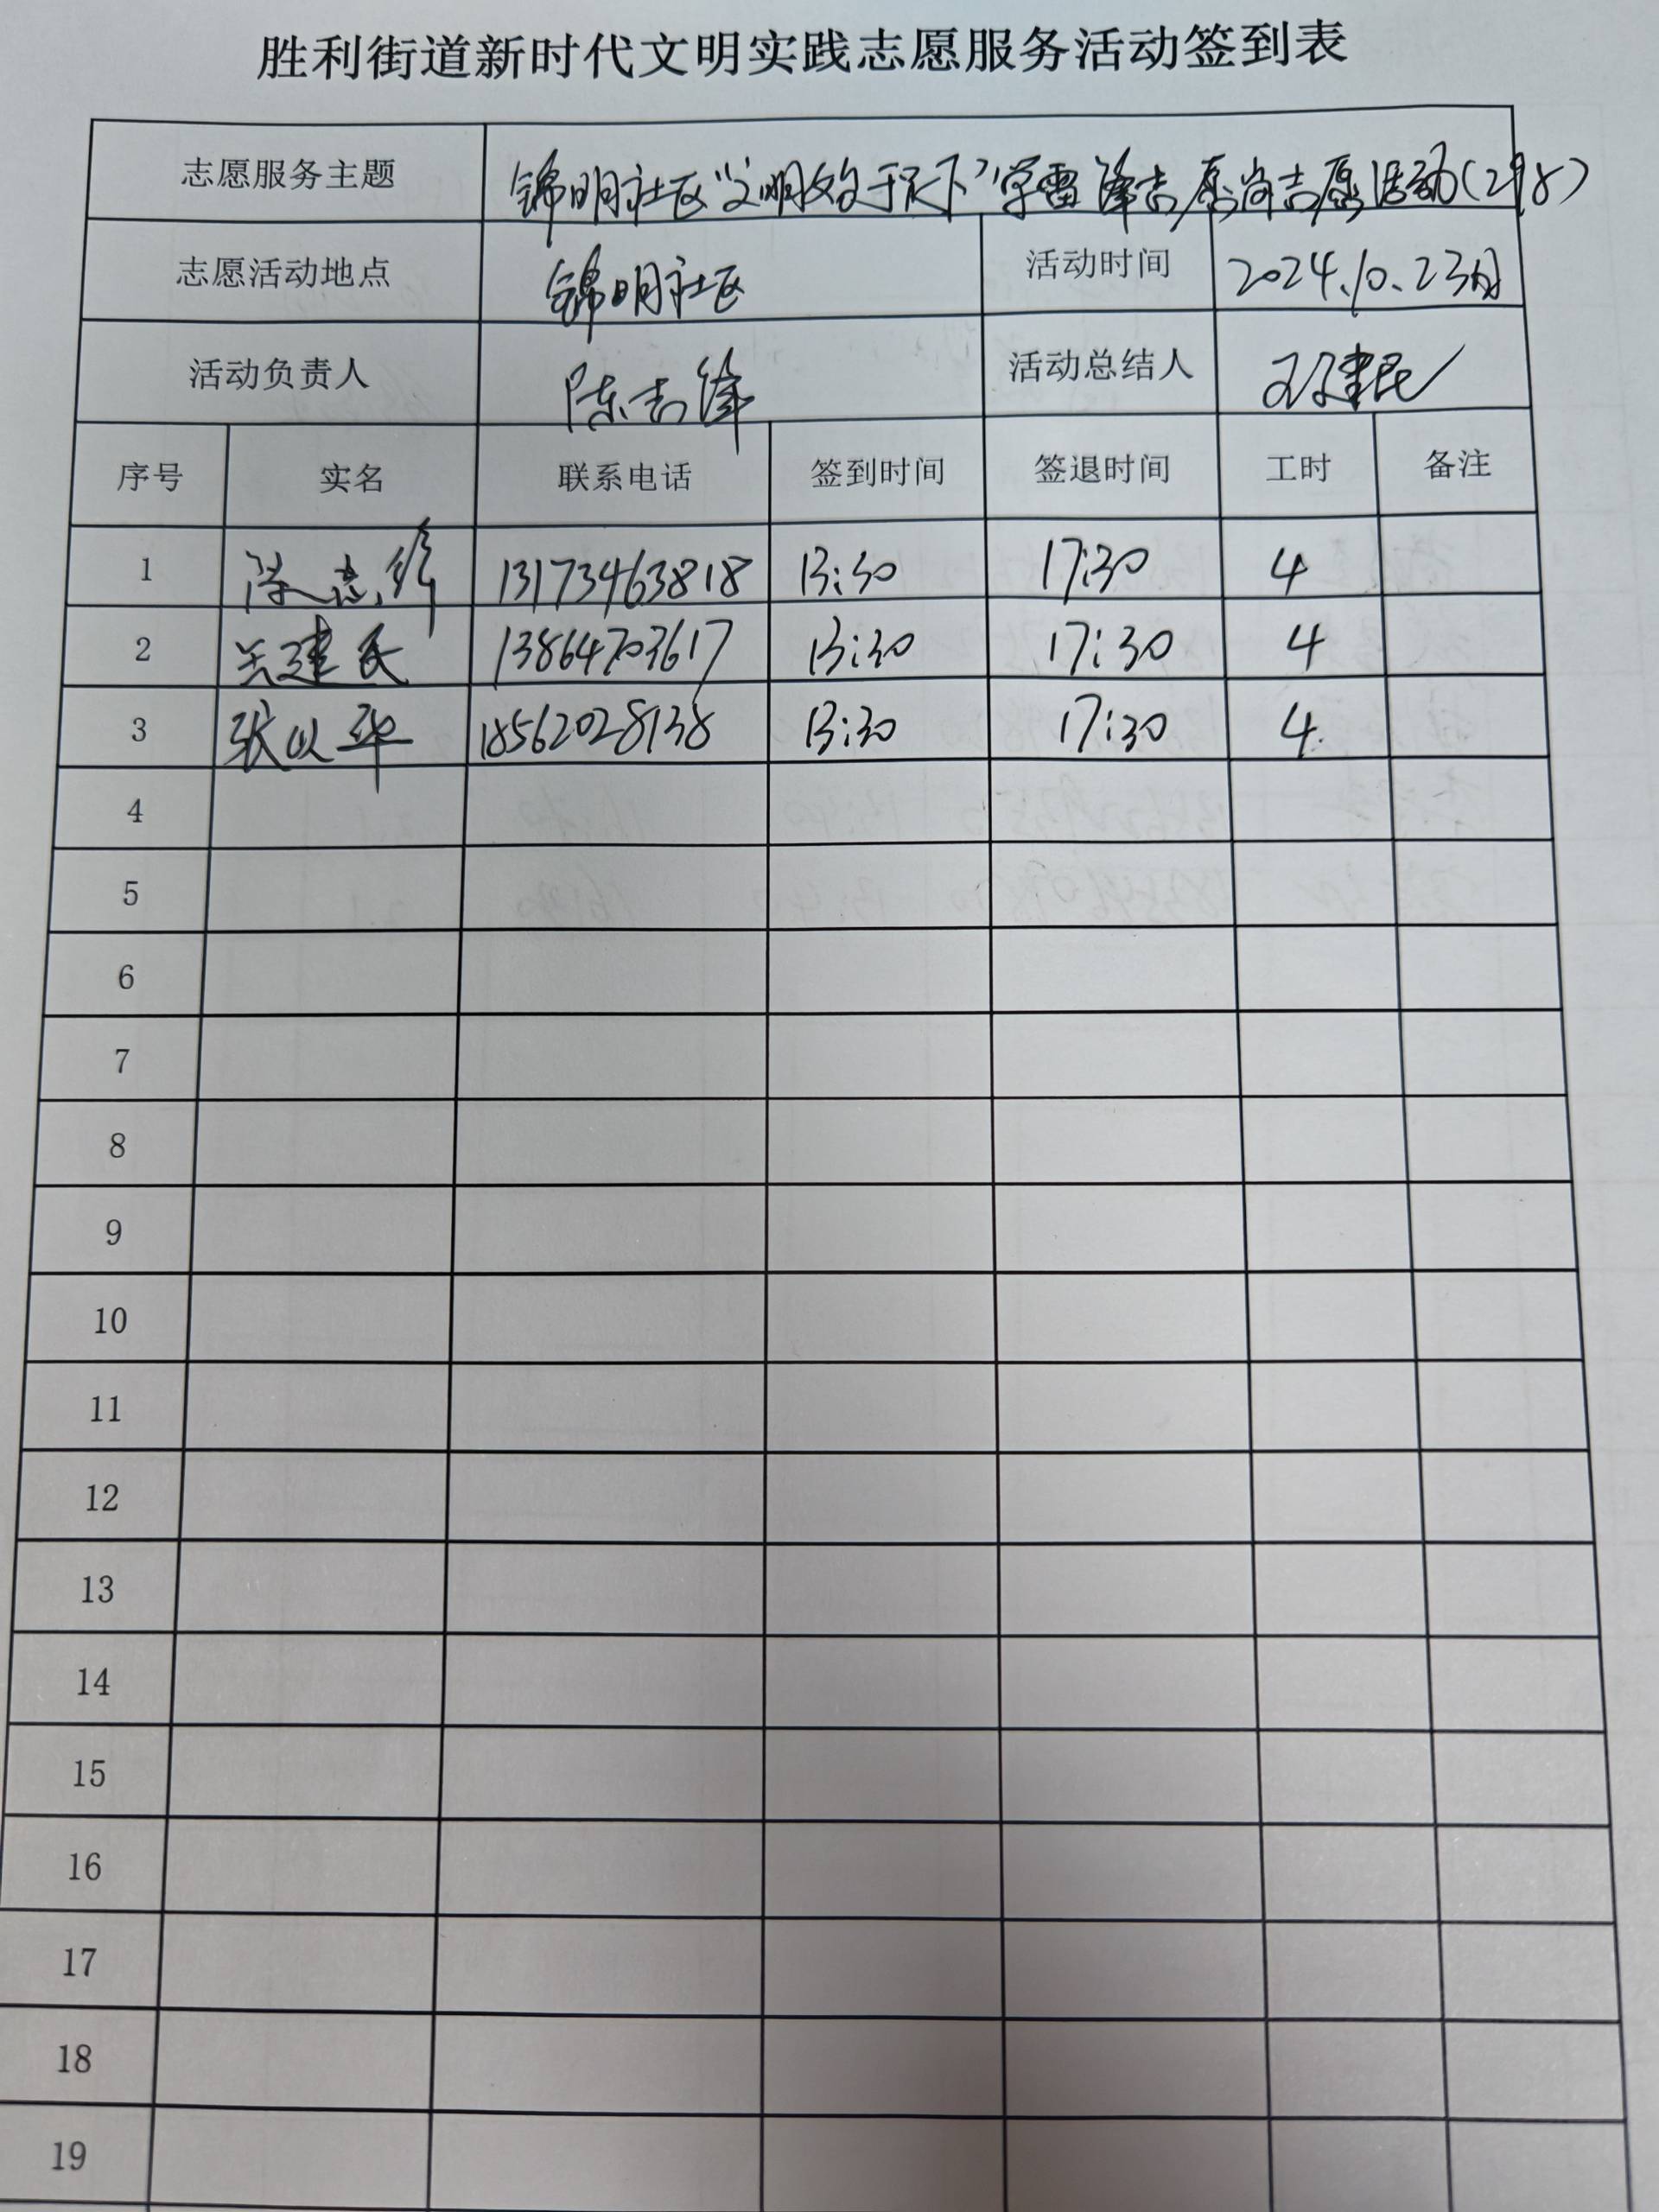 胜利街道新时代文明实践志愿服务活动签到表
志愿服务主题 锦明社区"文明 于天下"学雷锋志愿 志愿活动(298)
志愿活动地点 锦明社区 活动时间 2024.10.23
活动负责人 陈志峰 活动总结人 建民
序号 实名 联系电话 签到时间 签退时间 工时 备注
1 陈志峰 13173463818 13:30 17:30 4
2 建民 13864703617 13:30 17:30 4
3 张以华 18562028138 13:30 17:30 4
4
5
6
7
8
9
10
11
12
13
14
15
16
17
18
19